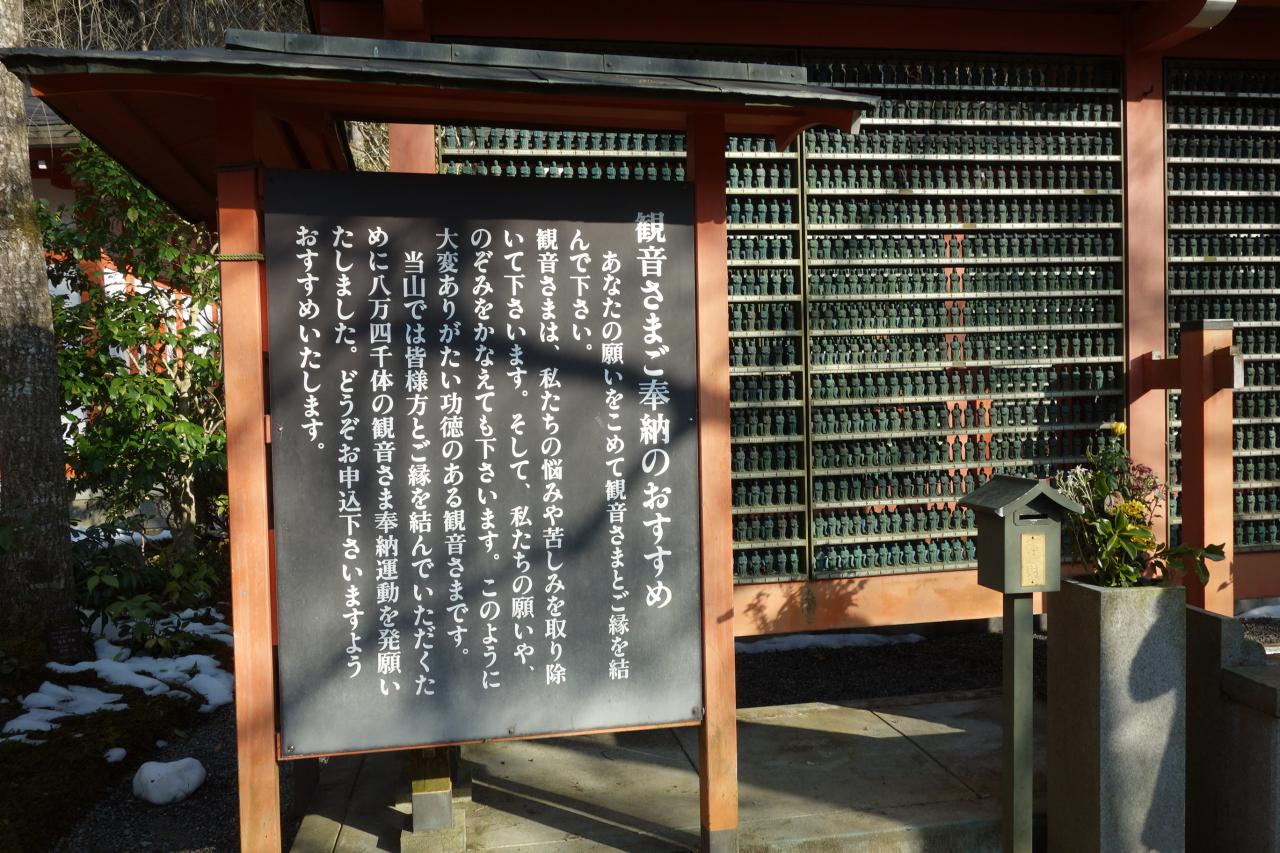 観音さまご奉納のおすすめ
あなたの願いをこめて観音さまとご縁を結
んで下さい。
観音さまは、私たちの悩みや苦しみを取り除
いて下さいます。そして、私たちの願いや、
のぞみをかなえても下さいます。このように
大変ありがたい功徳のある観音さまです。
当山では皆様方とご縁を結んでいただくた
めに八万四千体の観音さま奉納運動を発願い
たしました。どうぞお申込下さいますよう
おすすめいたします。